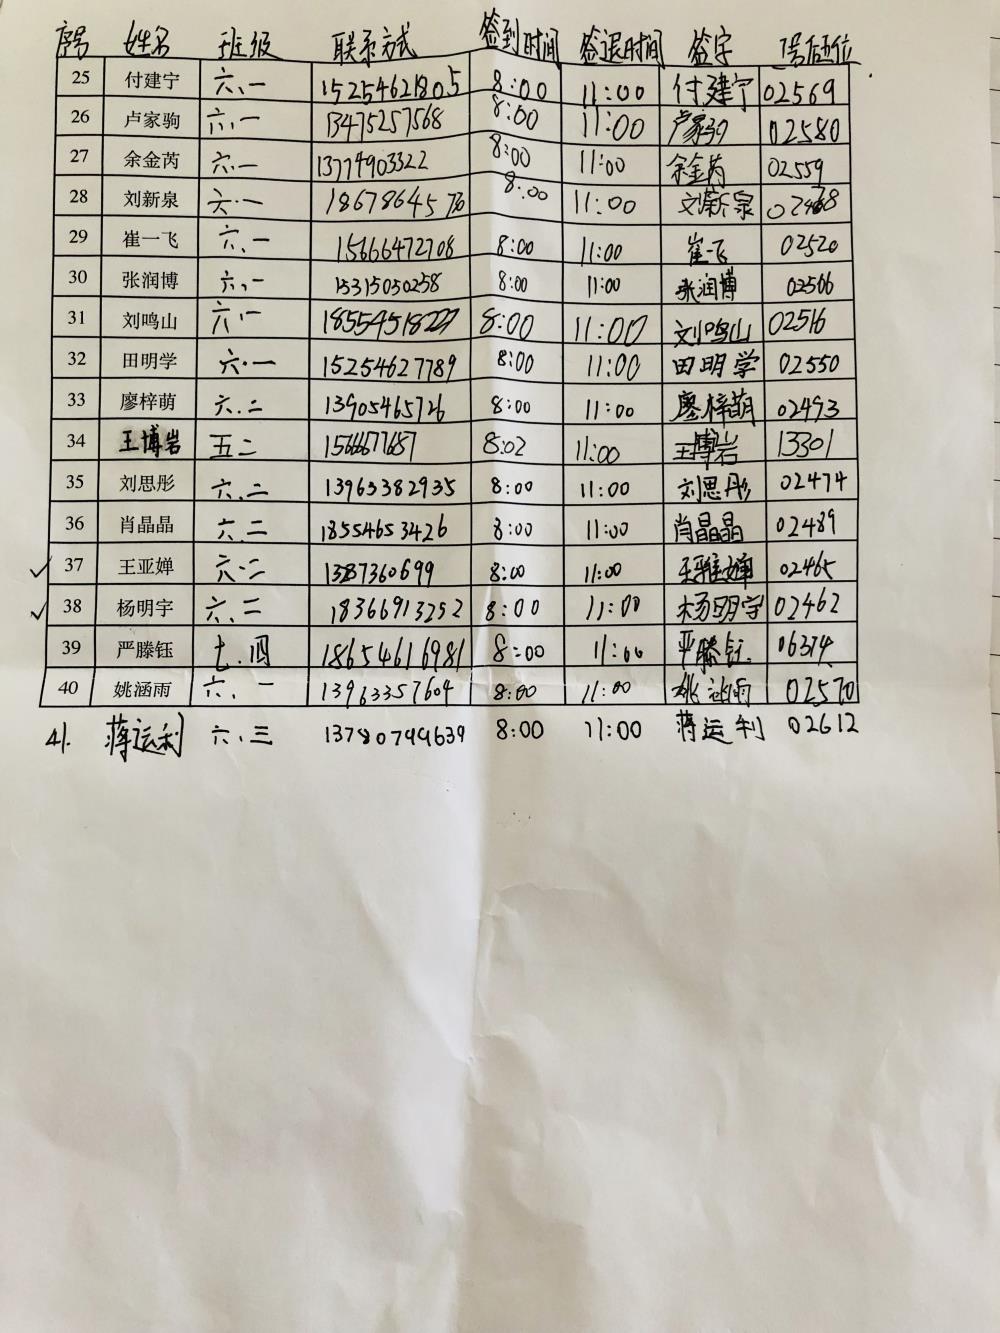 序号 姓名 班级 联系方式 签到时间 签退时间 签字 号后五位
25 付建宁 六、一 15254621805 8:00 11:00 付建宁 02569
26 卢家驹 六、一 13475257568 8:00 11:00 卢家驹 02580
27 余金芮 六.一 13774903322 8:00 11:00 余金芮 02559
28 刘新泉 六.一 18678645 8:00 11:00 刘新泉
29 崔一飞 六.一 15666472708 8:00 11:00 崔一飞 02520
30 张润博 六.一 15315030258 8:00 11:00 张润博 02506
31 刘鸣山 六.一 8:00 11:00 刘鸣山 02516
32 田明学 六.一 15254627789 8:00 11:00 田明学 02550
33 廖梓萌 六.二 13905465726 8:00 11:00 廖梓萌 02493
34 王博岩 五二 8:02 11:00 王博岩 13301
35 刘思彤 六.二 13963382935 8:00 11:00 刘思彤 02474
36 肖晶晶 六.二 18554653426 8:00 11:00 肖晶晶 02489
✓ 37 王亚婵 六.二 8:00 11:00 02465
✓ 38 杨明宇 六.二 18366913252 8:00 11:00 杨明宇 02462
39 严滕钰 七.四 18654616981 8:00 11:00 严滕钰 06374
40 姚涵雨 六.一 13963357604 8:00 11:00 姚涵雨 02570
41. 蒋运利 六.三 13780799639 8:00 11:00 蒋运利 02612